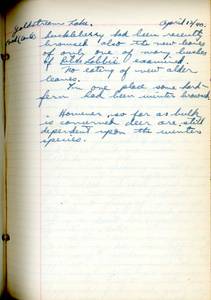 Goldstream Lake. April 12/40.
huckleberry had been recently
browsed & also the new leaves
of only one of many bushes
of Ribes lobbii examined.
No eating of new alder
leaves.
In one place some hard-
fern had been winter browsed.
However, so far as bulk
is concerned deer are still
dependent upon the winter
species.